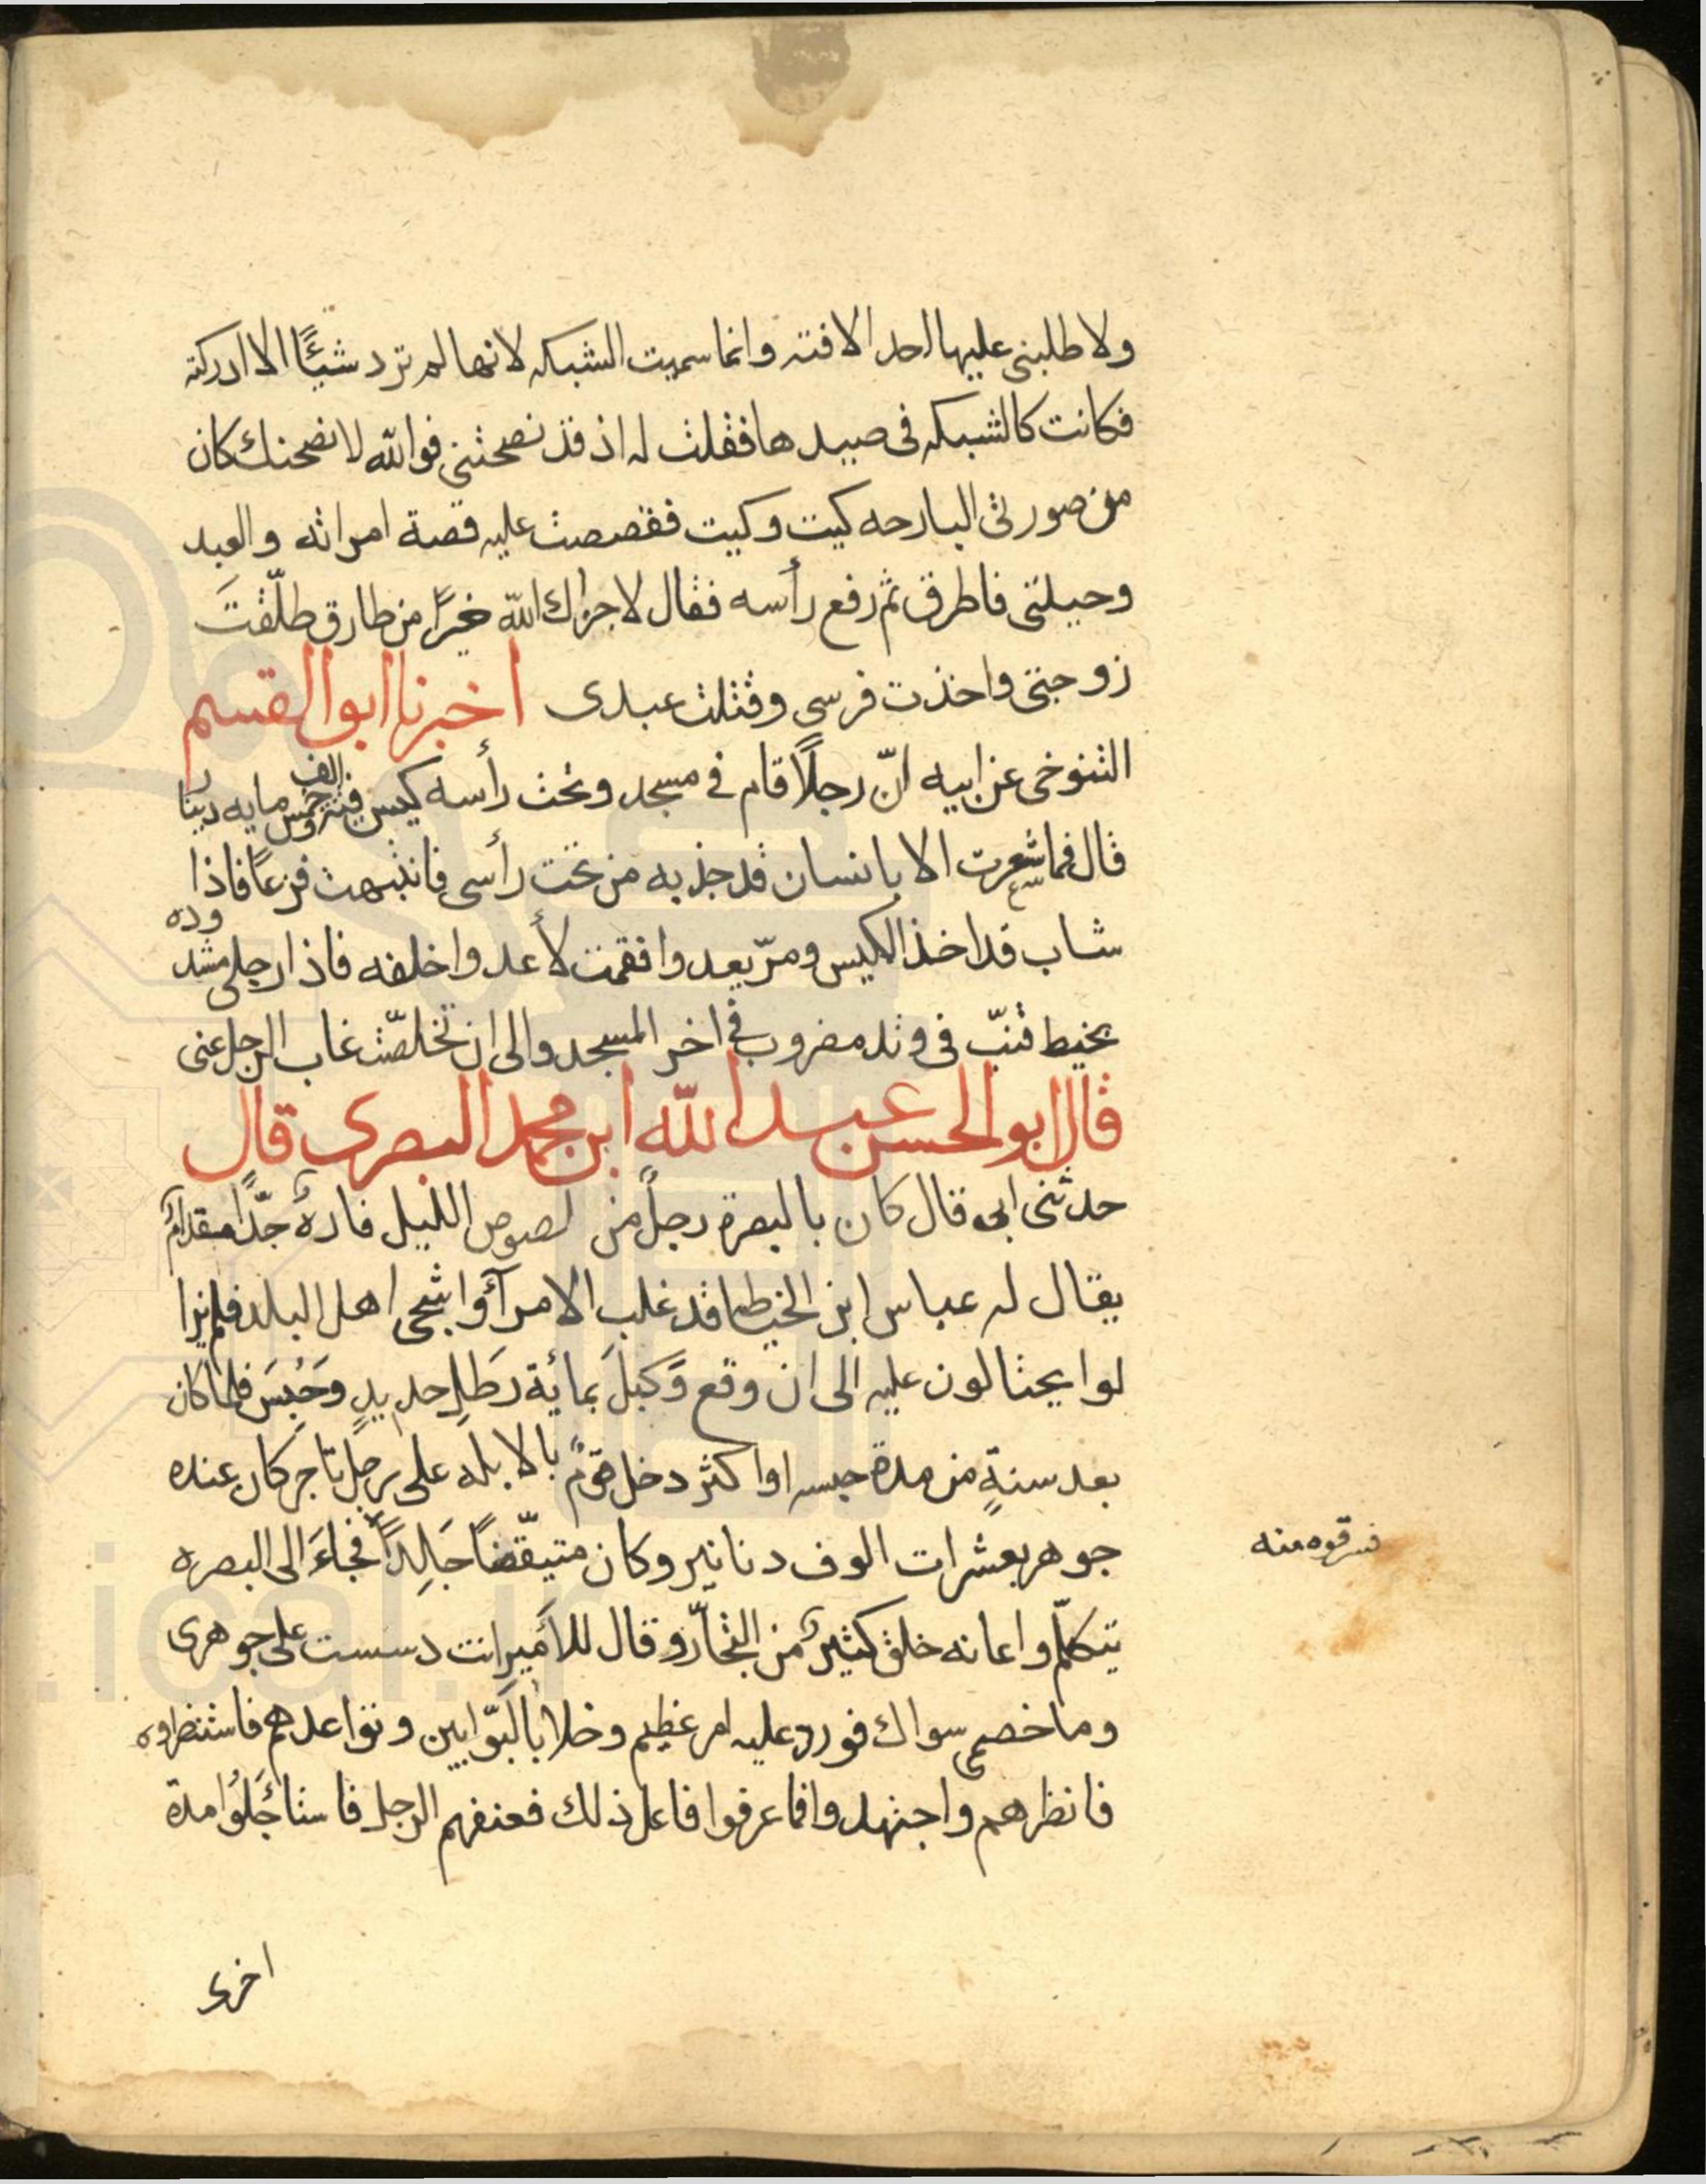 ولا طلبنى عليها احد الا فته وانما سميت الشبكه لانها لم ترد شيئًا الا ادركته
فكانت كالشبكه فى صيدها فقلت له اذ قد نصحتنى فوالله لانصحنك كان
من صورتى البارحه كيت وكيت فقصصت عليه قصة امراته والعبد
وحيلتى فاطرق ثم رفع رأسه فقال لا جزاك الله خيرًا من طارق طلّقتَ
زوجتى واخذت فرسى وقتلت عبدى اخبرنا ابو القسم
التنوخى عن ابيه انّ رجلًا قام فى مسجد وتحت رأسه كيس فيه الف وخمس مايه دينا
قال فما شعرت الا بانسان قد جذبه من تحت رأسى فانتبهت فزعًا فاذا
شاب قد اخذ الكيس ومرّ يعدوا فقمت لأعدوا خلفه فاذا رجلى مشدوده
بخيط قنب فى وتد مضروب فى اخر المسجد والى ان تخلصّت غاب الرجل عنى
قال ابو الحسن عبد الله ابن محمد البصرى قال
حدثنى ابى قال كان بالبصرة رجلٌ من لصوص الليل فارهٌ جدًّا مقدامٌ
يقال له عباس ابن الخياطه قد غلب الامرآؤ اشجى اهل البلد فلم يزا
لوا يحتالون عليه الى ان وقع وَكبلَ بمائة رَطَلِ حديدٍ وَحُبِسَ فلما كان
بعد سنةٍ من مدة حبسه او اكثر دخل قومٌ بالابله على رجل تاجر كان عنده
جوهر بعشرات الوف دنانير وكان متيقّضًا جَالِدًا فجاءَ الى البصره
فسرقوه منه
يتكلّم واعانه خلق كثيرٌ من التجّار وقال للأمير انت دسست على جوهرى
وما خصمى سواك فورد عليه امر عظيم وخلا بالبّوابين وتواعدهم فاستنظروه
فانظرهم واجتهدوا فما عرفوا فاعل ذلك فعنفهم الرجل فاستاجَلُوا مدة
اخرى